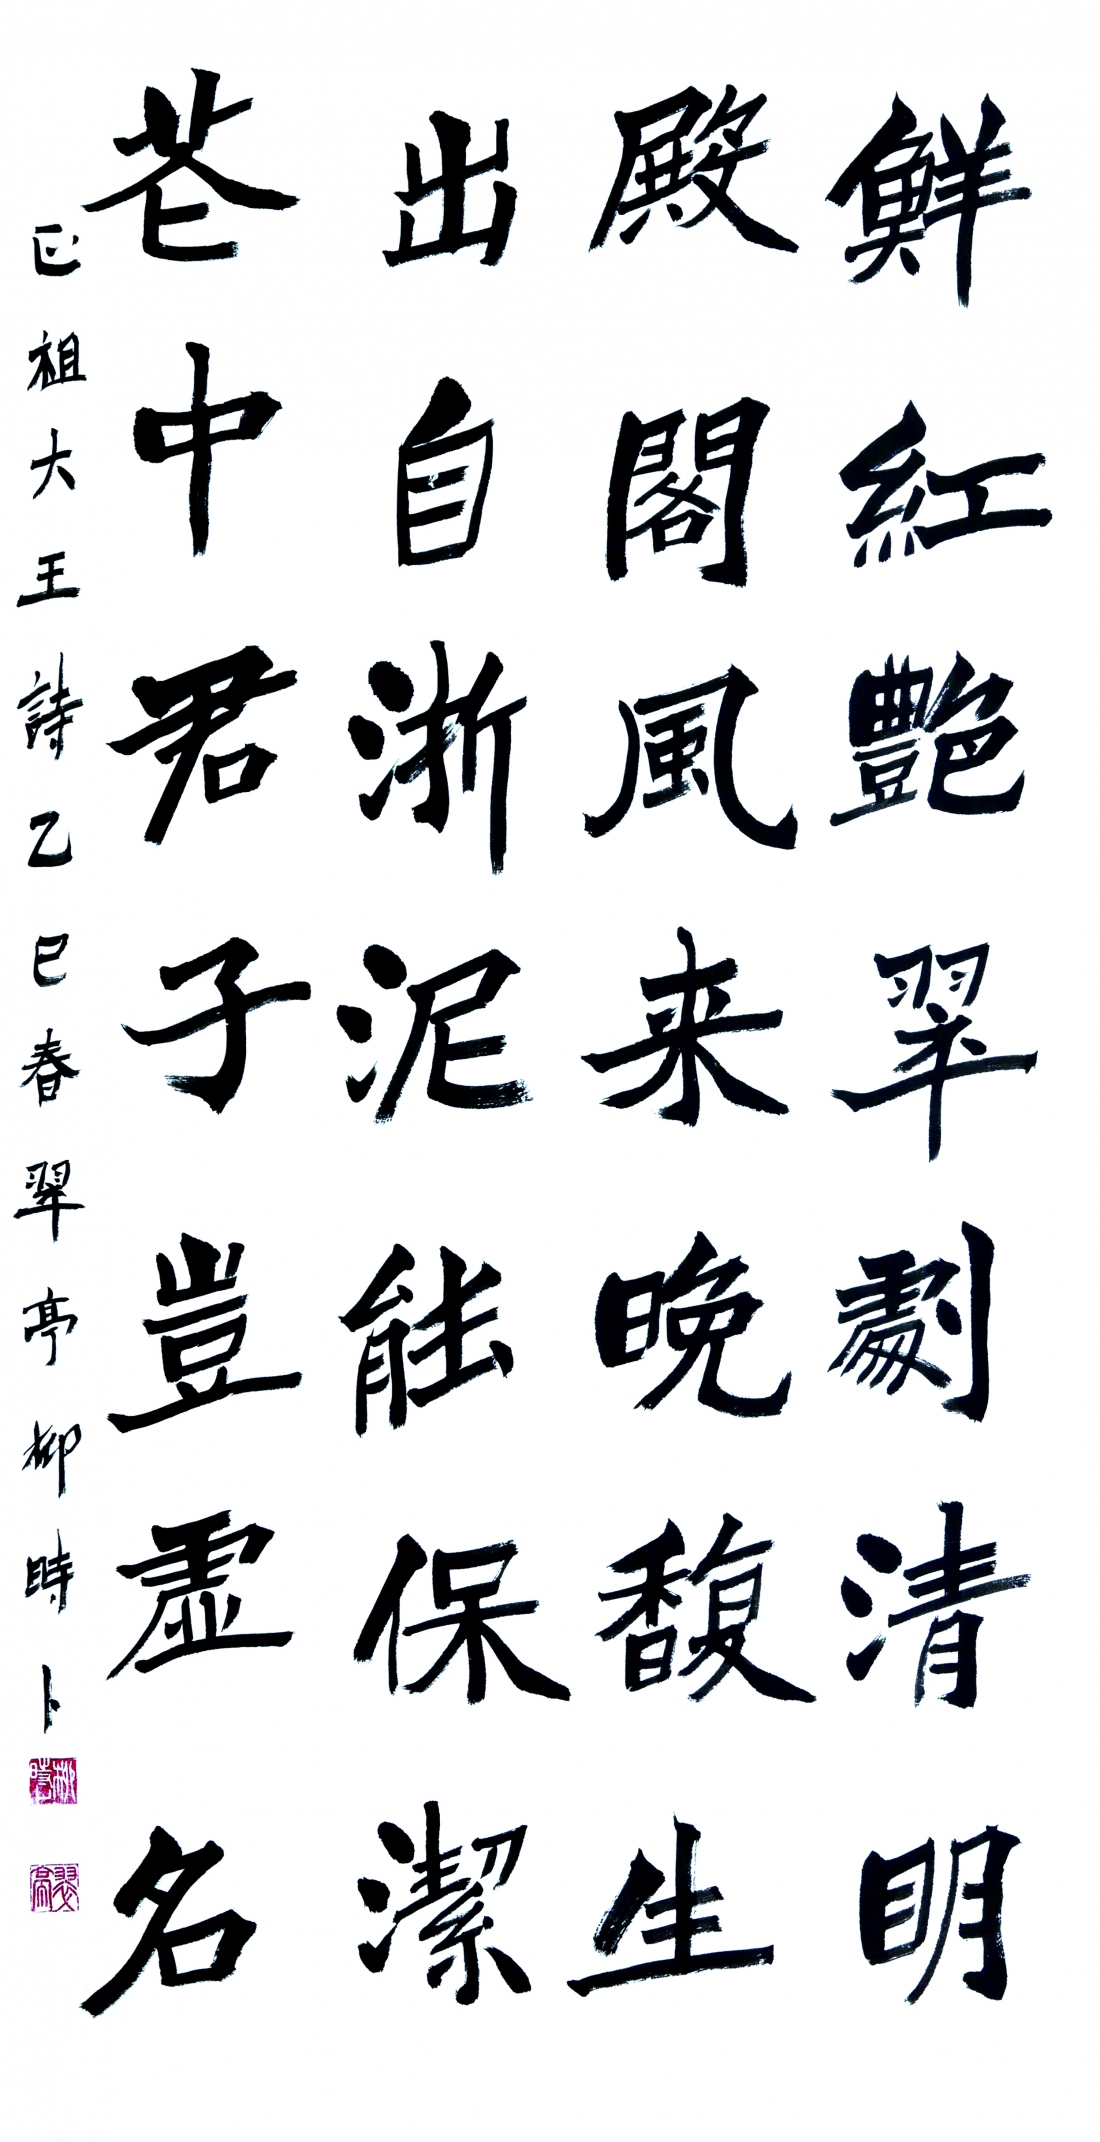 鮮紅艶翠劇清明
殿閣風来晩馥生
出自浙泥能保潔
花中君子豈虛名
正祖大王詩乙巳春翠亭柳時卜